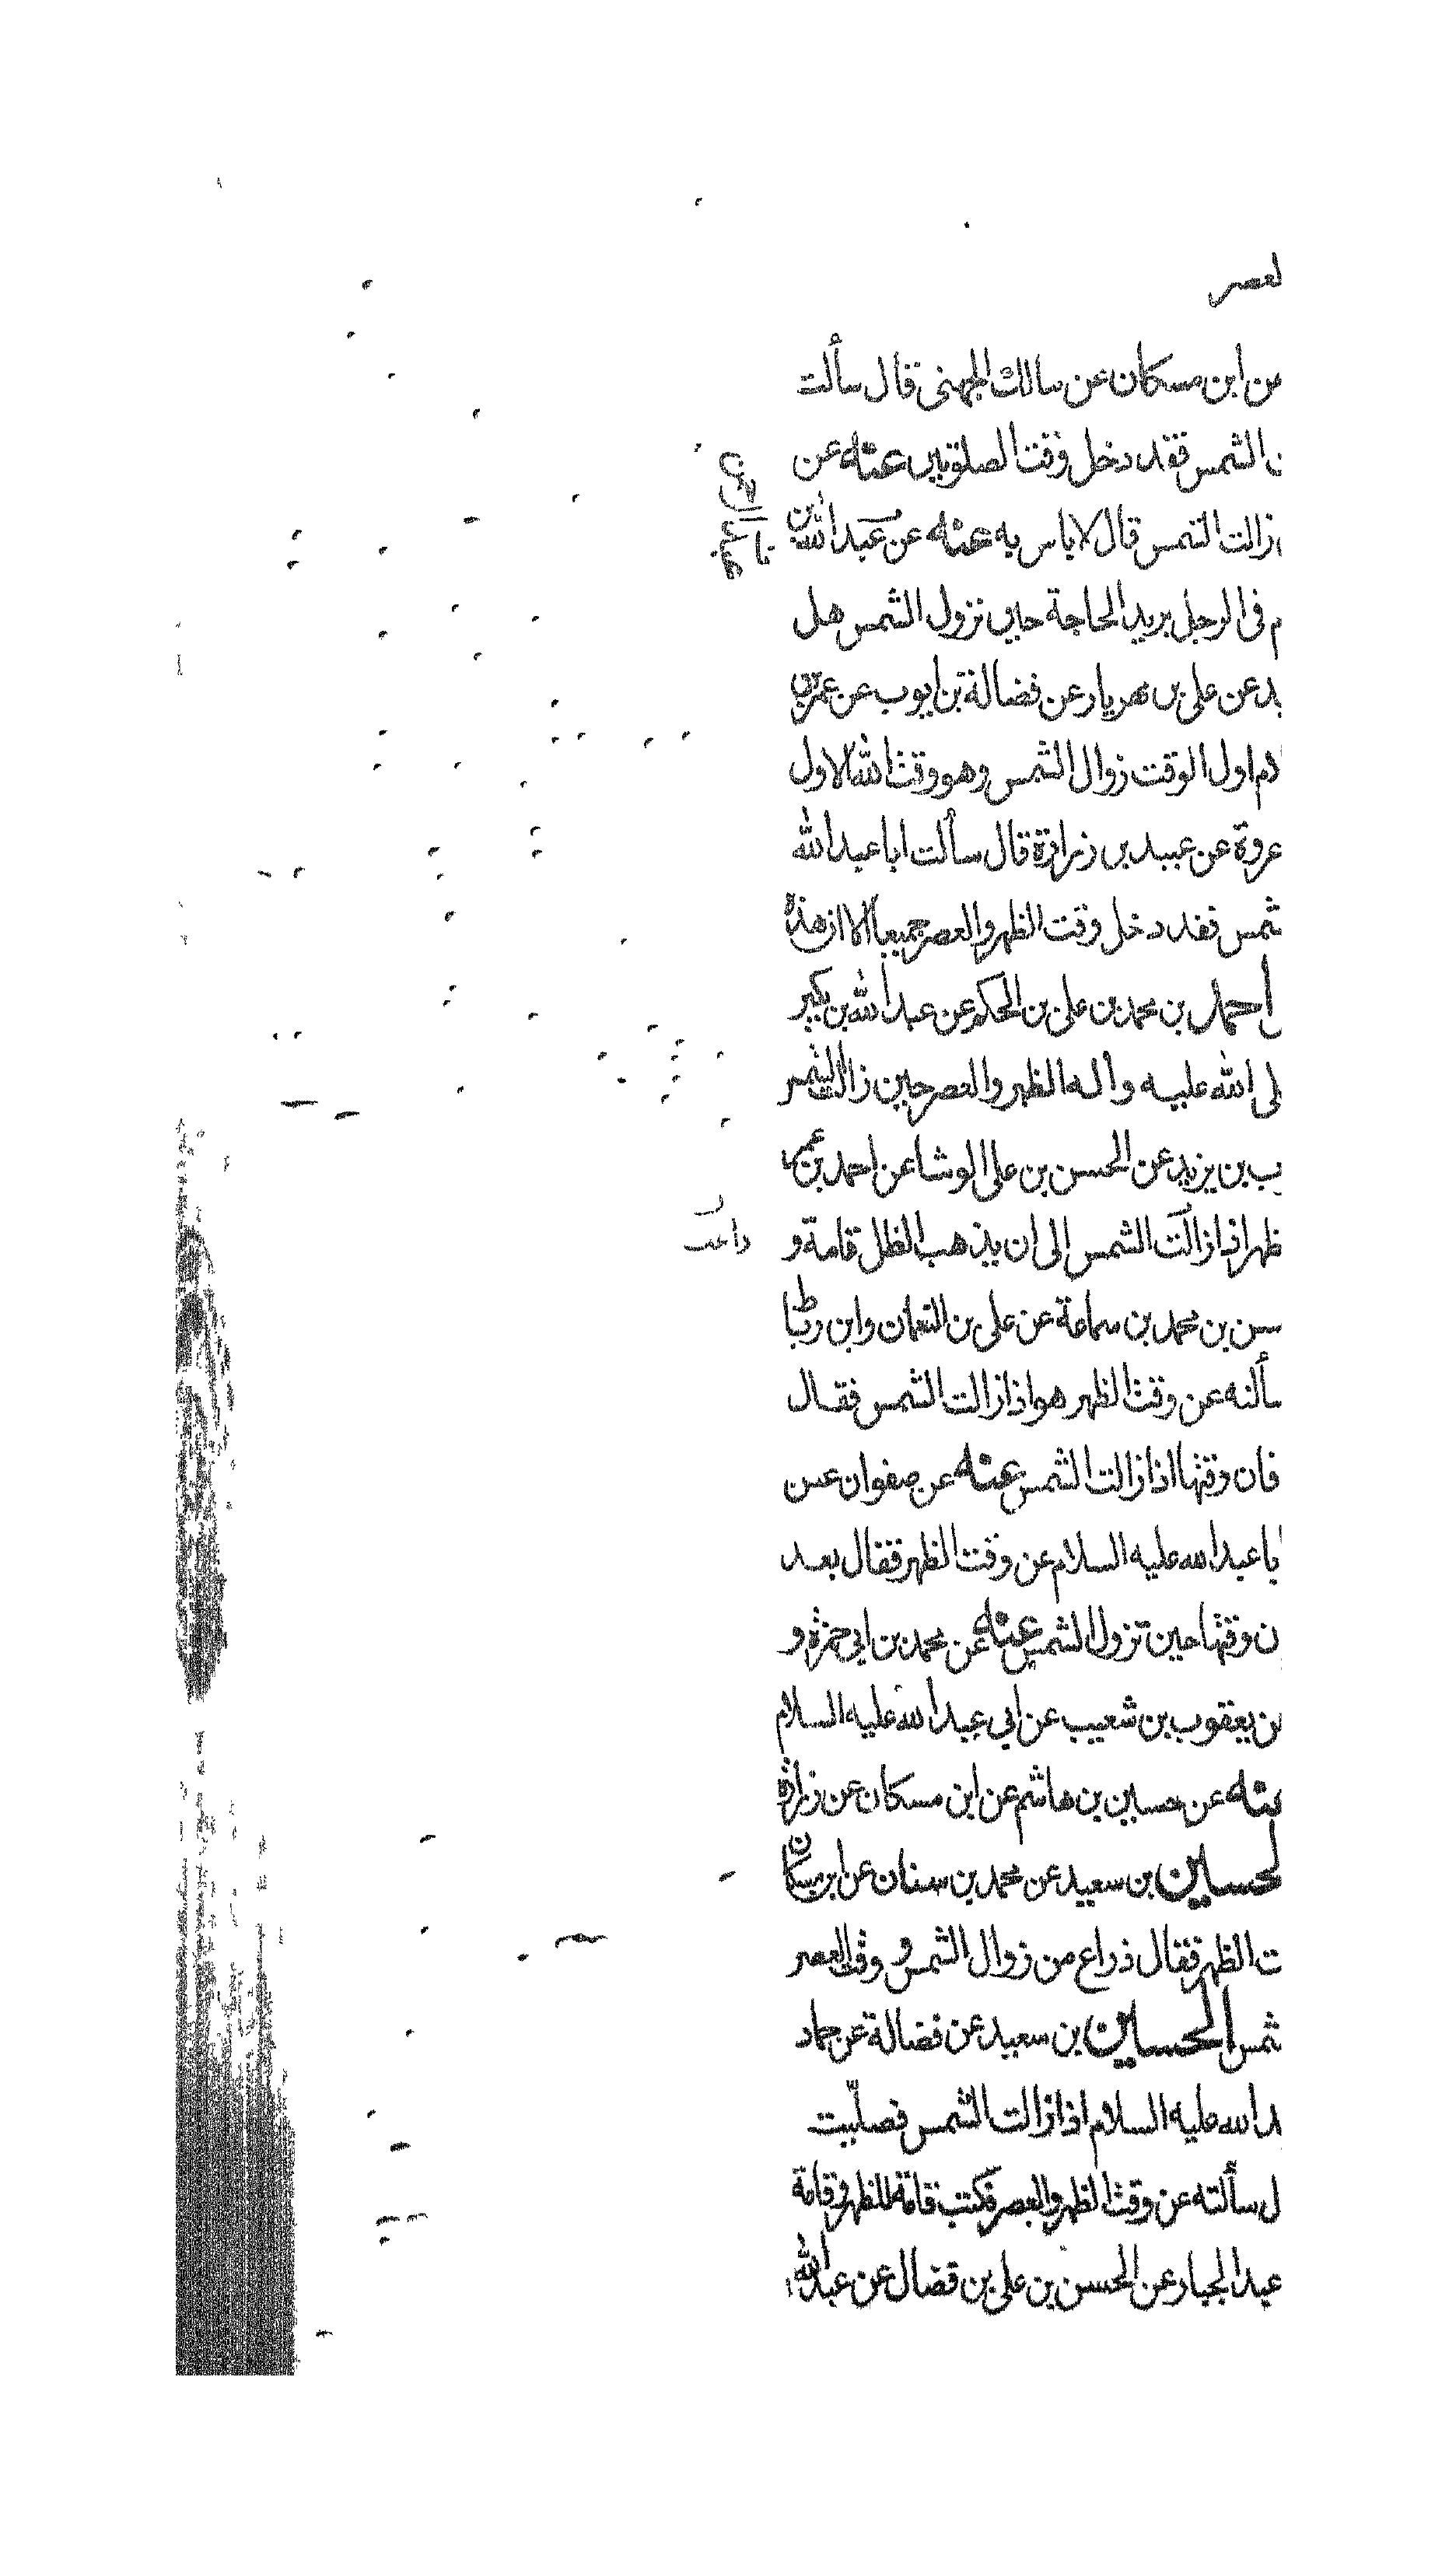 لعصر
عن ابن مسكان عن مالك الجهنى قال سألت
الشمس فقد دخل وقت الصلوتين عنه عن
زالت الشمس قال لا باس به عنه عن عبد الله بن
م فى الرجل يريد الحاجة حين تزول الشمس هل
يد عن على بن مهزيار عن فضالة بن ايوب عن عمر بن
لام اول الوقت زوال الشمس وهو وقت الله الاول
عروة عن عبيد بن زرارة قال سألت ابا عبد الله
شمس فقد دخل وقت الظهر والعصر جميعا الا ان هذه
احمد بن محمد بن على بن الحكم عن عبد الله بن بكير
لى الله عليه واله الظهر والعصر حين زالت الشمس
ب بن يزيد عن الحسن بن على الوشا عن احمد بن عمر
ظهر اذا زالت الشمس الى ان يذهب الظل قامة و
سن بن محمد بن سماعة عن على بن النعمان وابن رباط
سألته عن وقت الظهر هو اذا زالت الشمس فقال
فان وقتها اذا زالت الشمس عنه عن صفوان عن
با عبد الله عليه السلام عن وقت الظهر فقال بعد
ن وقتها حين تزول الشمس عنه عن محمد بن ابي حمزة و
ن يعقوب بن شعيب عن ابي عبد الله عليه السلام
عنه عن حسين بن هاشم عن ابن مسكان عن زرارة
لحسين بن سعيد عن محمد بن سنان عن ابن مسكان
ت الظهر فقال ذراع من زوال الشمس و وقت العصر
شمس الحسين بن سعيد عن فضالة عن حماد
د الله عليه السلام اذا زالت الشمس فصليت
ل سألته عن وقت الظهر والعصر فكتب قامة للظهر وقامة
عبد الجبار عن الحسن بن على بن فضال عن عبد الله